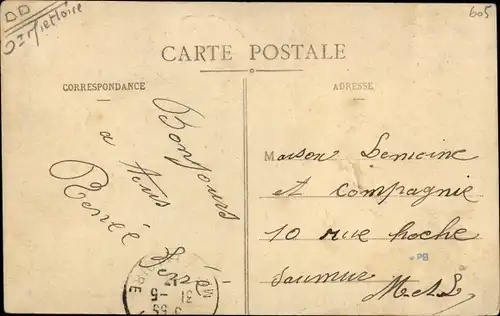 DD
605
CARTE POSTALE
CORRESPONDANCE
ADRESSE
Bonjours
a tous
Renée
Maison Lemoine
et compagnie
10 rue hoche
Saumur
M et L
PB